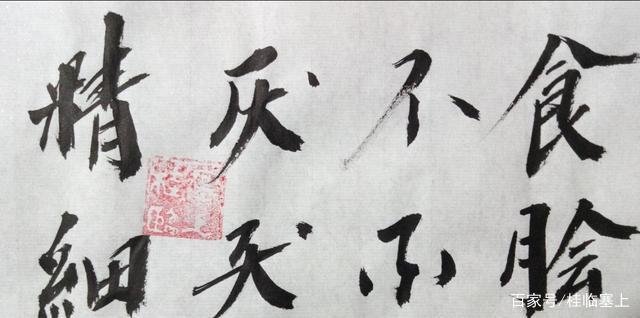 食不厌精
膾不厌細
百家号/桂临塞上